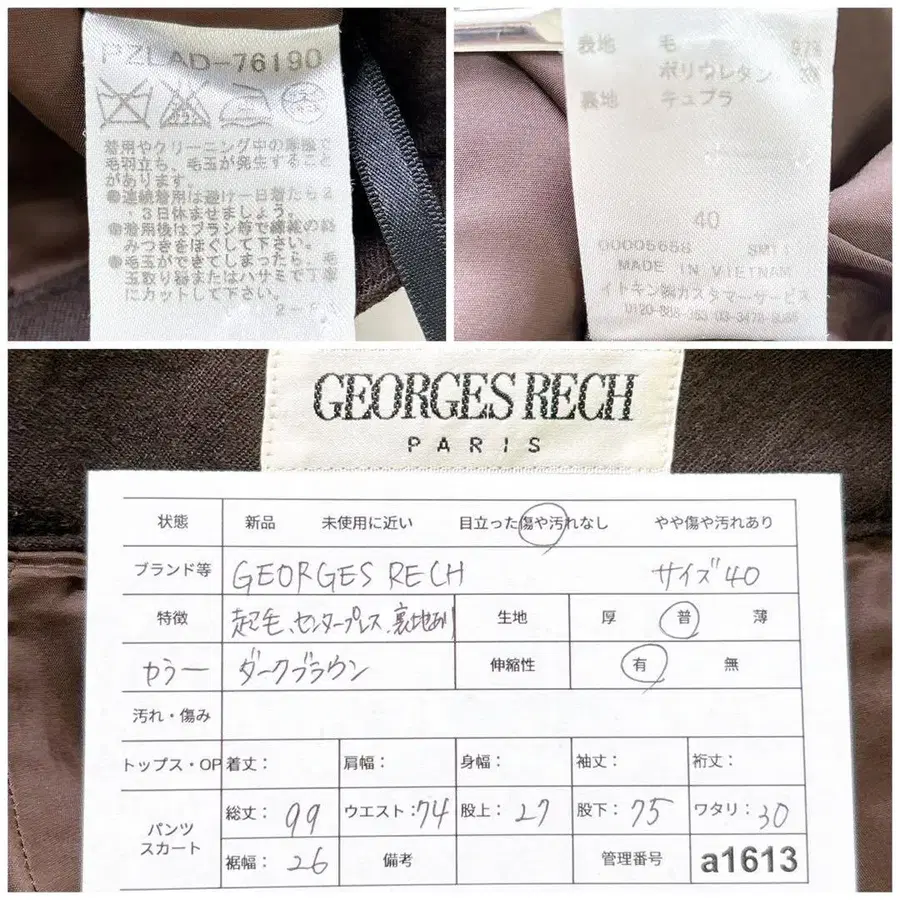 PZLAD-76190
着用やクリーニング中の摩擦で
毛羽立ち、毛玉が発生すること
があります。
●連続着用は避け一日着たら2
・3日休ませましょう。
●着用後はブラシ等で繊維の絡
みつきをほぐして下さい。
●毛玉ができてしまったら、毛
玉取り器またはハサミで丁寧
にカットして下さい。
表地 毛
ポリウレタン
裏地 キュプラ
40
00005658 SM11
MADE IN VIETNAM
イトキン㈱カスタマーサービス
GEORGES RECH
PARIS
状態 新品 未使用に近い 目立った傷や汚れなし やや傷や汚れあり
ブランド等 GEORGES RECH サイズ40
特徴 起毛、センタープレス、裏地あり 生地 厚 普 薄
カラー ダークブラウン 伸縮性 有 無
汚れ・傷み
トップス・OP 着丈: 肩幅: 身幅: 袖丈: 裄丈:
パンツ スカート 総丈: 99 ウエスト: 74 股上: 27 股下: 75 ワタリ: 30
裾幅: 26 備考 管理番号 a1613